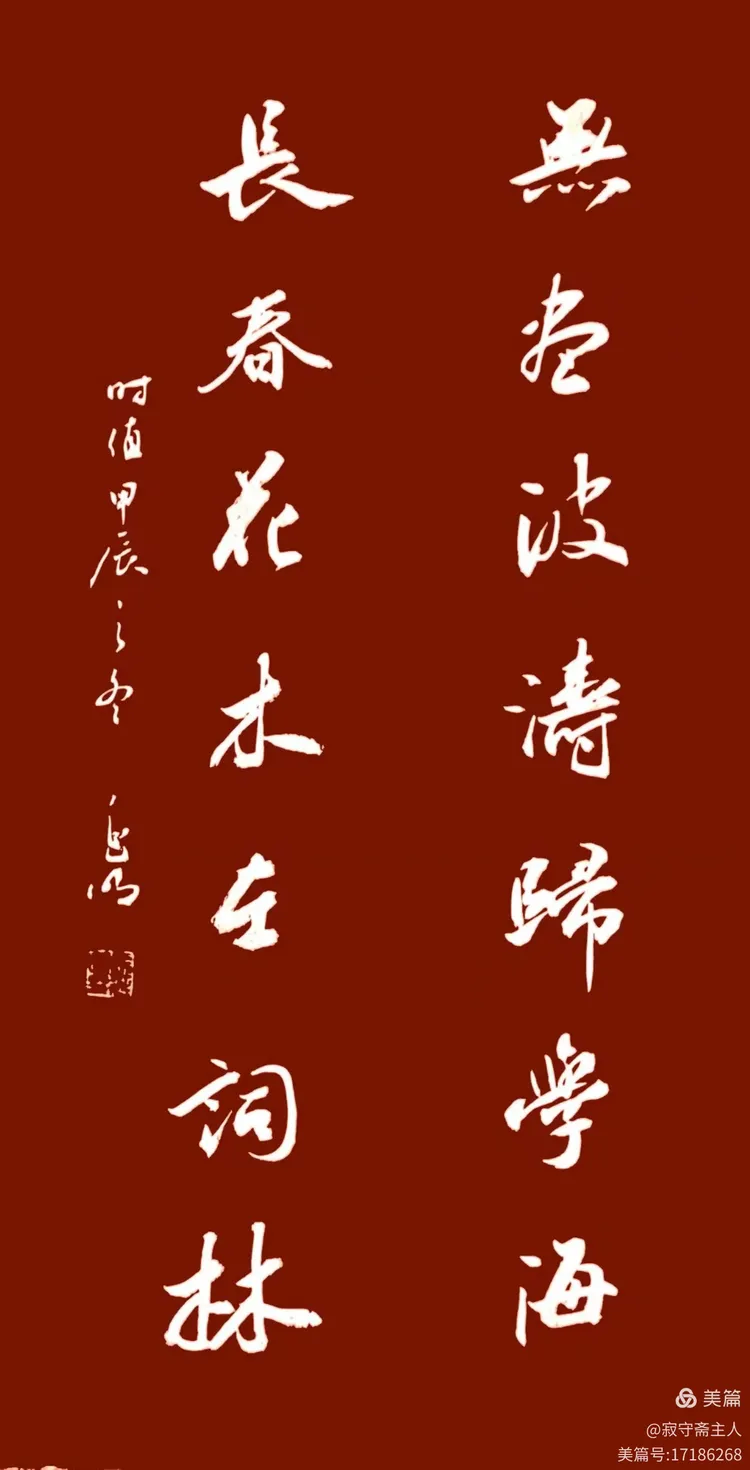 無盡波濤歸學海
長春花木在詞林
时值甲辰之冬
美篇
@寂守斋主人
美篇号:17186268